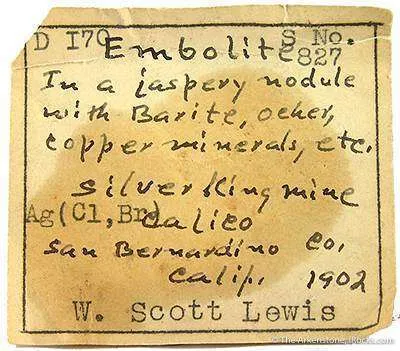 D 170 Embolite S No.
827
In a jaspery nodule
with Barite, ocher,
copper minerals, etc.
Silver King mine
Ag(Cl,Br) Calico
San Bernardino Co.
Calif. 1902
W. Scott Lewis
© The Arkenstone, iRocks.com